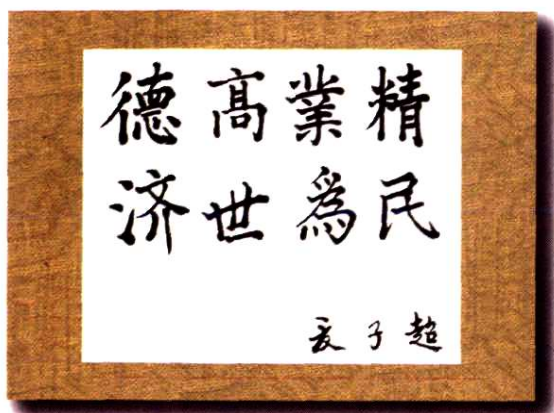 德高業精
济世爲民
子超